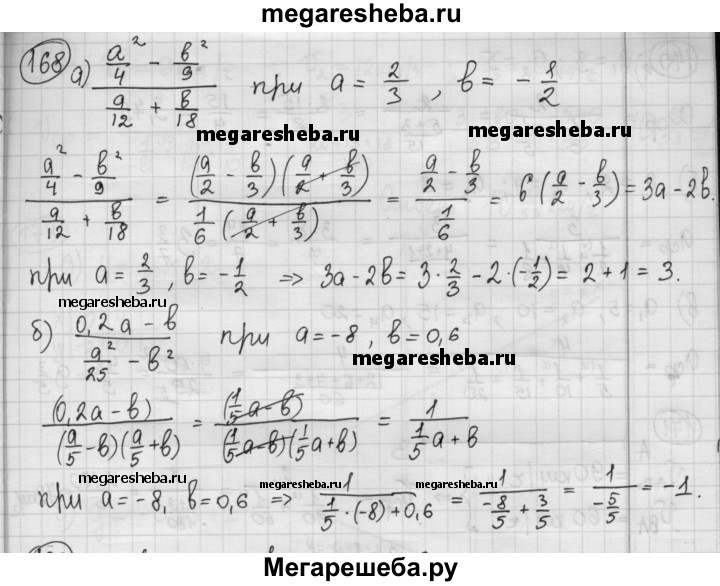 megaresheba.ru
168 а) (a²/4 - b²/9)/(a/12 + b/18) при a = 2/3, b = -1/2
megaresheba.ru
(a²/4 - b²/9)/(a/12 + b/18) = ((a/2 - b/3)(a/2 + b/3))/(1/6(a/2 + b/3)) = (a/2 - b/3)/(1/6) = 6(a/2 - b/3) = 3a - 2b.
при a = 2/3, b = -1/2 => 3a - 2b = 3·2/3 - 2·(-1/2) = 2 + 1 = 3.
megaresheba.ru
б) (0,2a - b)/(a²/25 - b²) при a = -8, b = 0,6
megaresheba.ru
(0,2a - b)/((a/5 - b)(a/5 + b)) = (1/5 a - b)/((1/5 a - b)(1/5 a + b)) = 1/(1/5 a + b)
megaresheba.ru
при a = -8, b = 0,6 => 1/(1/5·(-8) + 0,6) = 1/(-8/5 + 3/5) = 1/(-5/5) = -1.
megaresheba.ru
Мегарешеба.ру